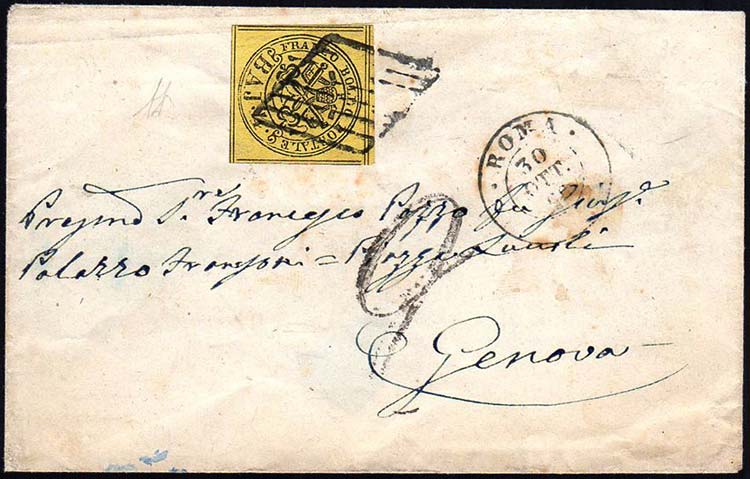 FRANCO BOLLO POSTALE
BAJ
ROMA
30
OTT.
Pregmo Sr. Francesco Pozzo fu Giusp.
Palazzo Fransoni = Piazza
2
Genova